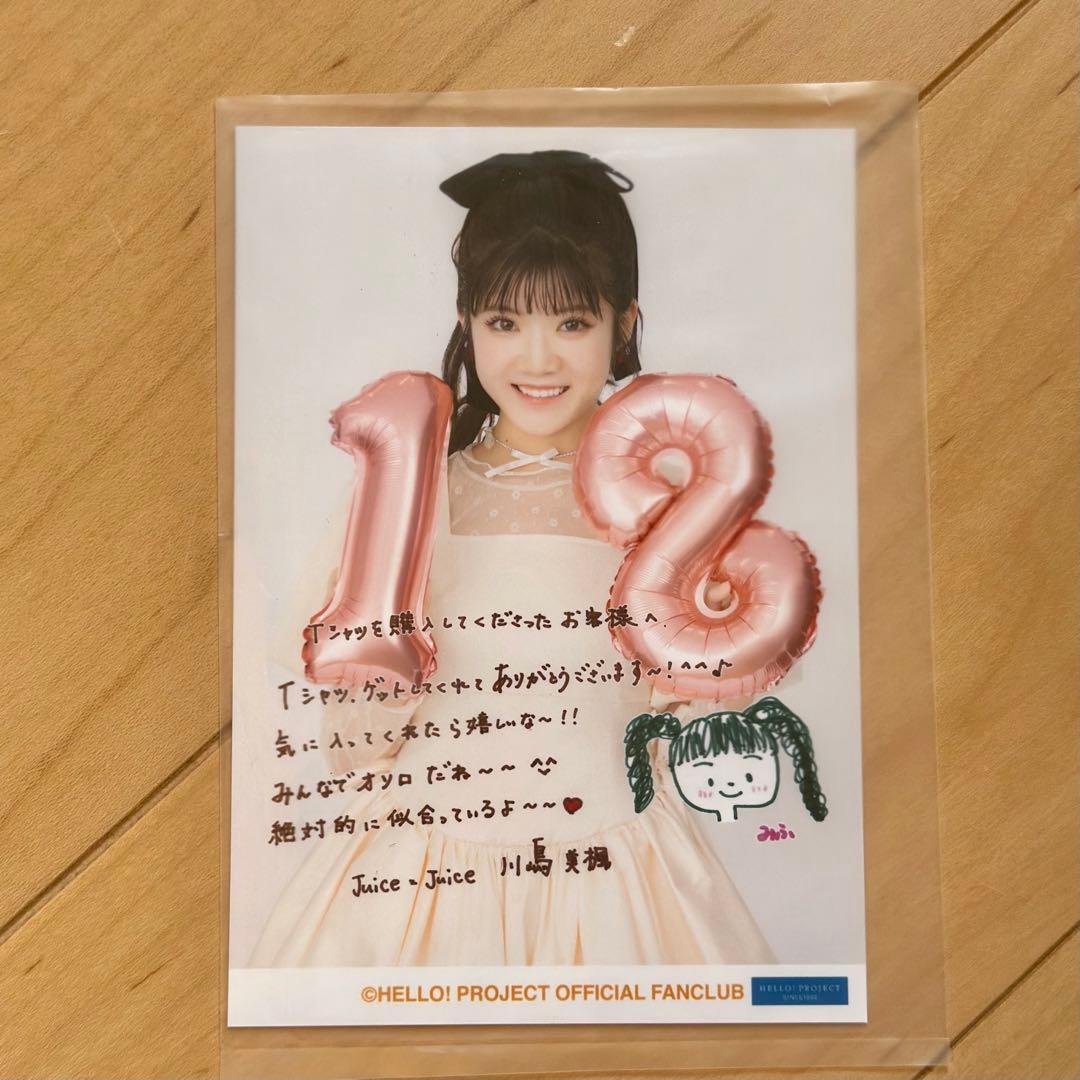 18
Tシャツを購入してくださったお客様へ.
Tシャツ、ゲットしてくれてありがとうございます〜!^^♪
気に入ってくれたら嬉しいな〜!!
みんなでオソロだね〜〜^^
絶対的に似合っているよ〜〜♥
みっふぃ
Juice=Juice 川嶋美楓
©HELLO! PROJECT OFFICIAL FANCLUB
HELLO! PROJECT
SINCE1998